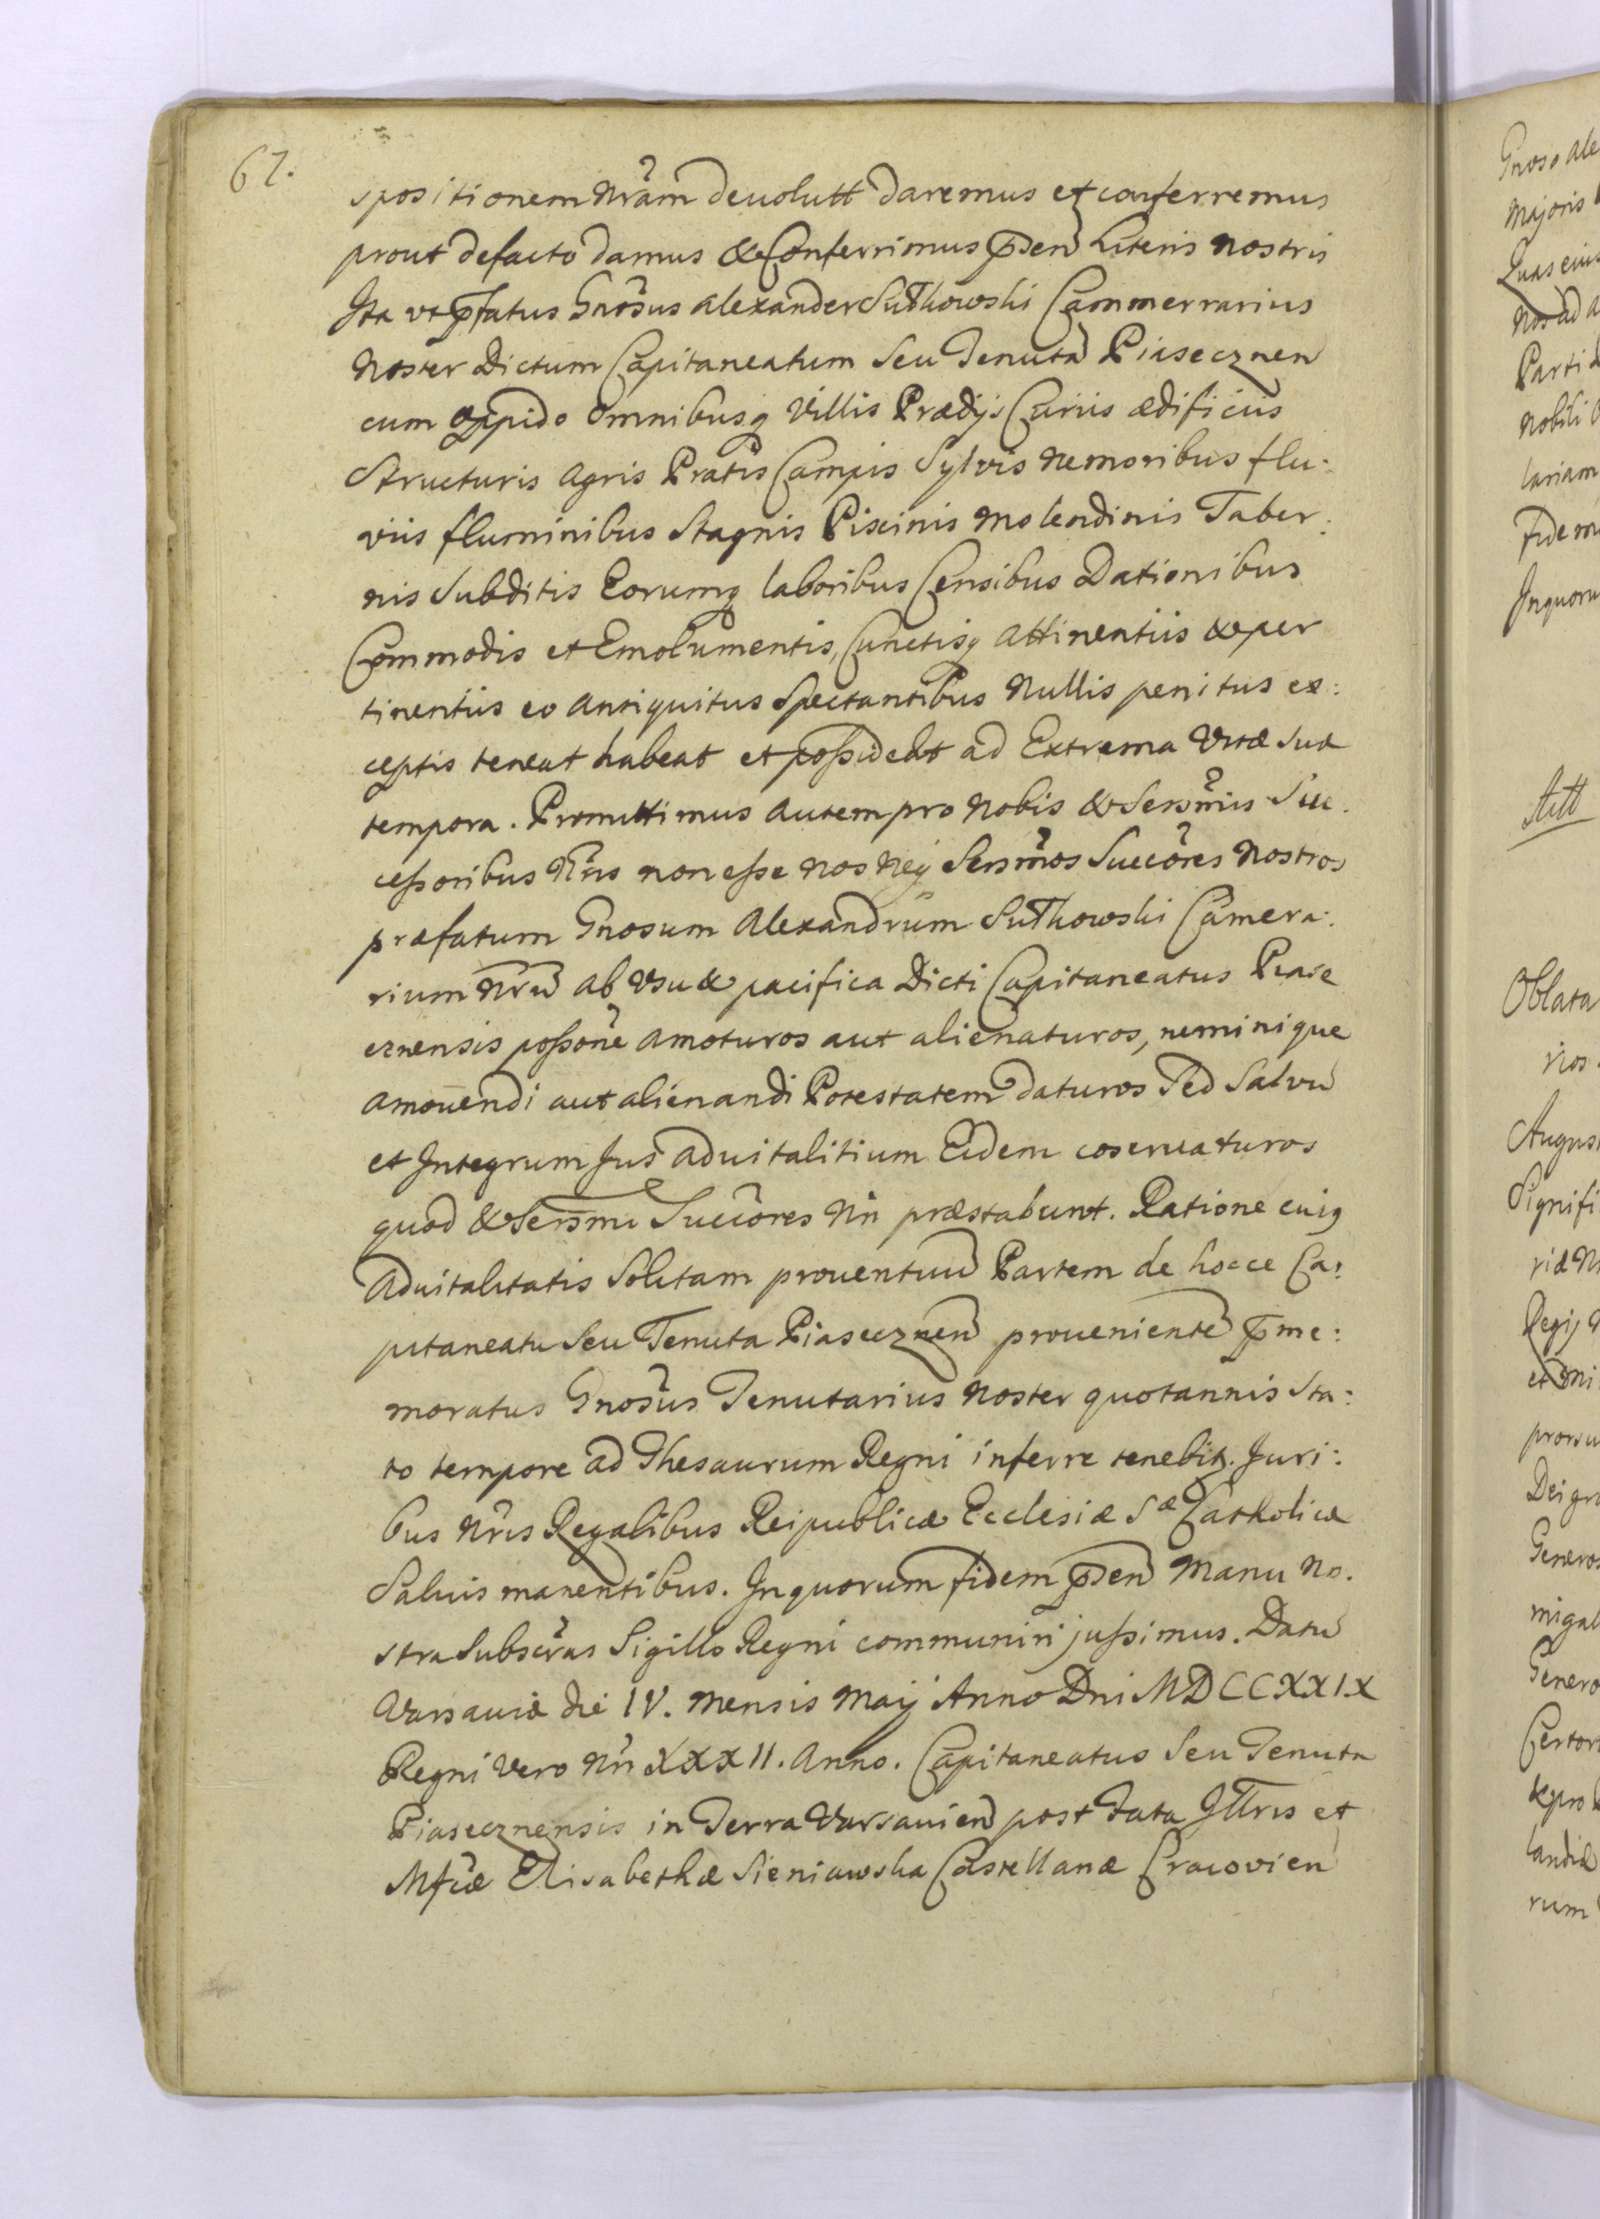 62.
spositionem Nram devolutt daremus et conferremus
prout defacto damus & Conferrimus pñsen Literis nostris
Ita vt pfatus Gnosus Alexander Sułkowski Cammerrarius
Noster Dictum Capitaneatum Seu Tenutã Piasecznen
cum Oppido Omnibusq Villis Prædijs Curiis ædificiis
Structuris Agris Pratis Campis Sylvis Nemoribus flu:
viis fluminibus Stagnis Piscinis Molendinis Taber:
nis Subditis Eorumq laboribus Censibus Dationibus
Commodis et Emolumentis, Cunctisq Attinentiis & per
tinentiis eo Antiquitus Spectantibus Nullis penitus ex:
ceptis teneat habeat et possideat ad Extrema Vitæ Suæ
tempora. Promittimus Autem pro Nobis & Sersmis Suc:
cessoribus Nris non esse Nos Neq Sersmos Succores Nostros
præfatum Gnosum Alexandrum Sułkowski Camera:
rium Nrũ Ab Vsu & pacifica Dicti Capitaneatus Piase
cznensis possone Amoturos aut alienaturos, neminique
Amovendi aut alienandi Potestatem daturos Sed Salvũ
et Integrum Jus Advitalitium Eidem coservaturos
quod & Sersmi Succores Nri præstabunt. Ratione cuiq
Advitalitatis Solitam proventuũ Partem de hocce Ca:
pitaneatu Seu Tenuta Piasecznen provenientẽ pme:
moratus Gnosus Tenutarius Noster quotannis Sta:
to tempore ad Thesaurum Regni inferre tenebitr. Juri:
bus Nris Regalibus Reipublicæ Ecclesiæ Sæ Catholicæ
Salvis manentibus. In quorum fidem pñsen Manu No.
stra Subscras Sigillo Regni communiri jussimus. Datũ
Varsaviæ die IV. Mensis Maij Anno Dni MDCCXXIX
Regni Vero Nri XXXII. Anno. Capitaneatus Seu Tenuta
Piasecznensis in Terra Varsavien post Fata Illtris et
Mfcæ Elisabethæ Sieniawska Castellanæ Cracovien
Gnoso Ale
Majoris
Quas eius
Nos ad a
Parti
Nobili
lariam
Fidem
Inquoru
Oblata
rios
August
Signifi
riæ N
Regij
et
prorsu
Dei gra
Generos
migal
Genero
Certor
& pro
landiæ
rum